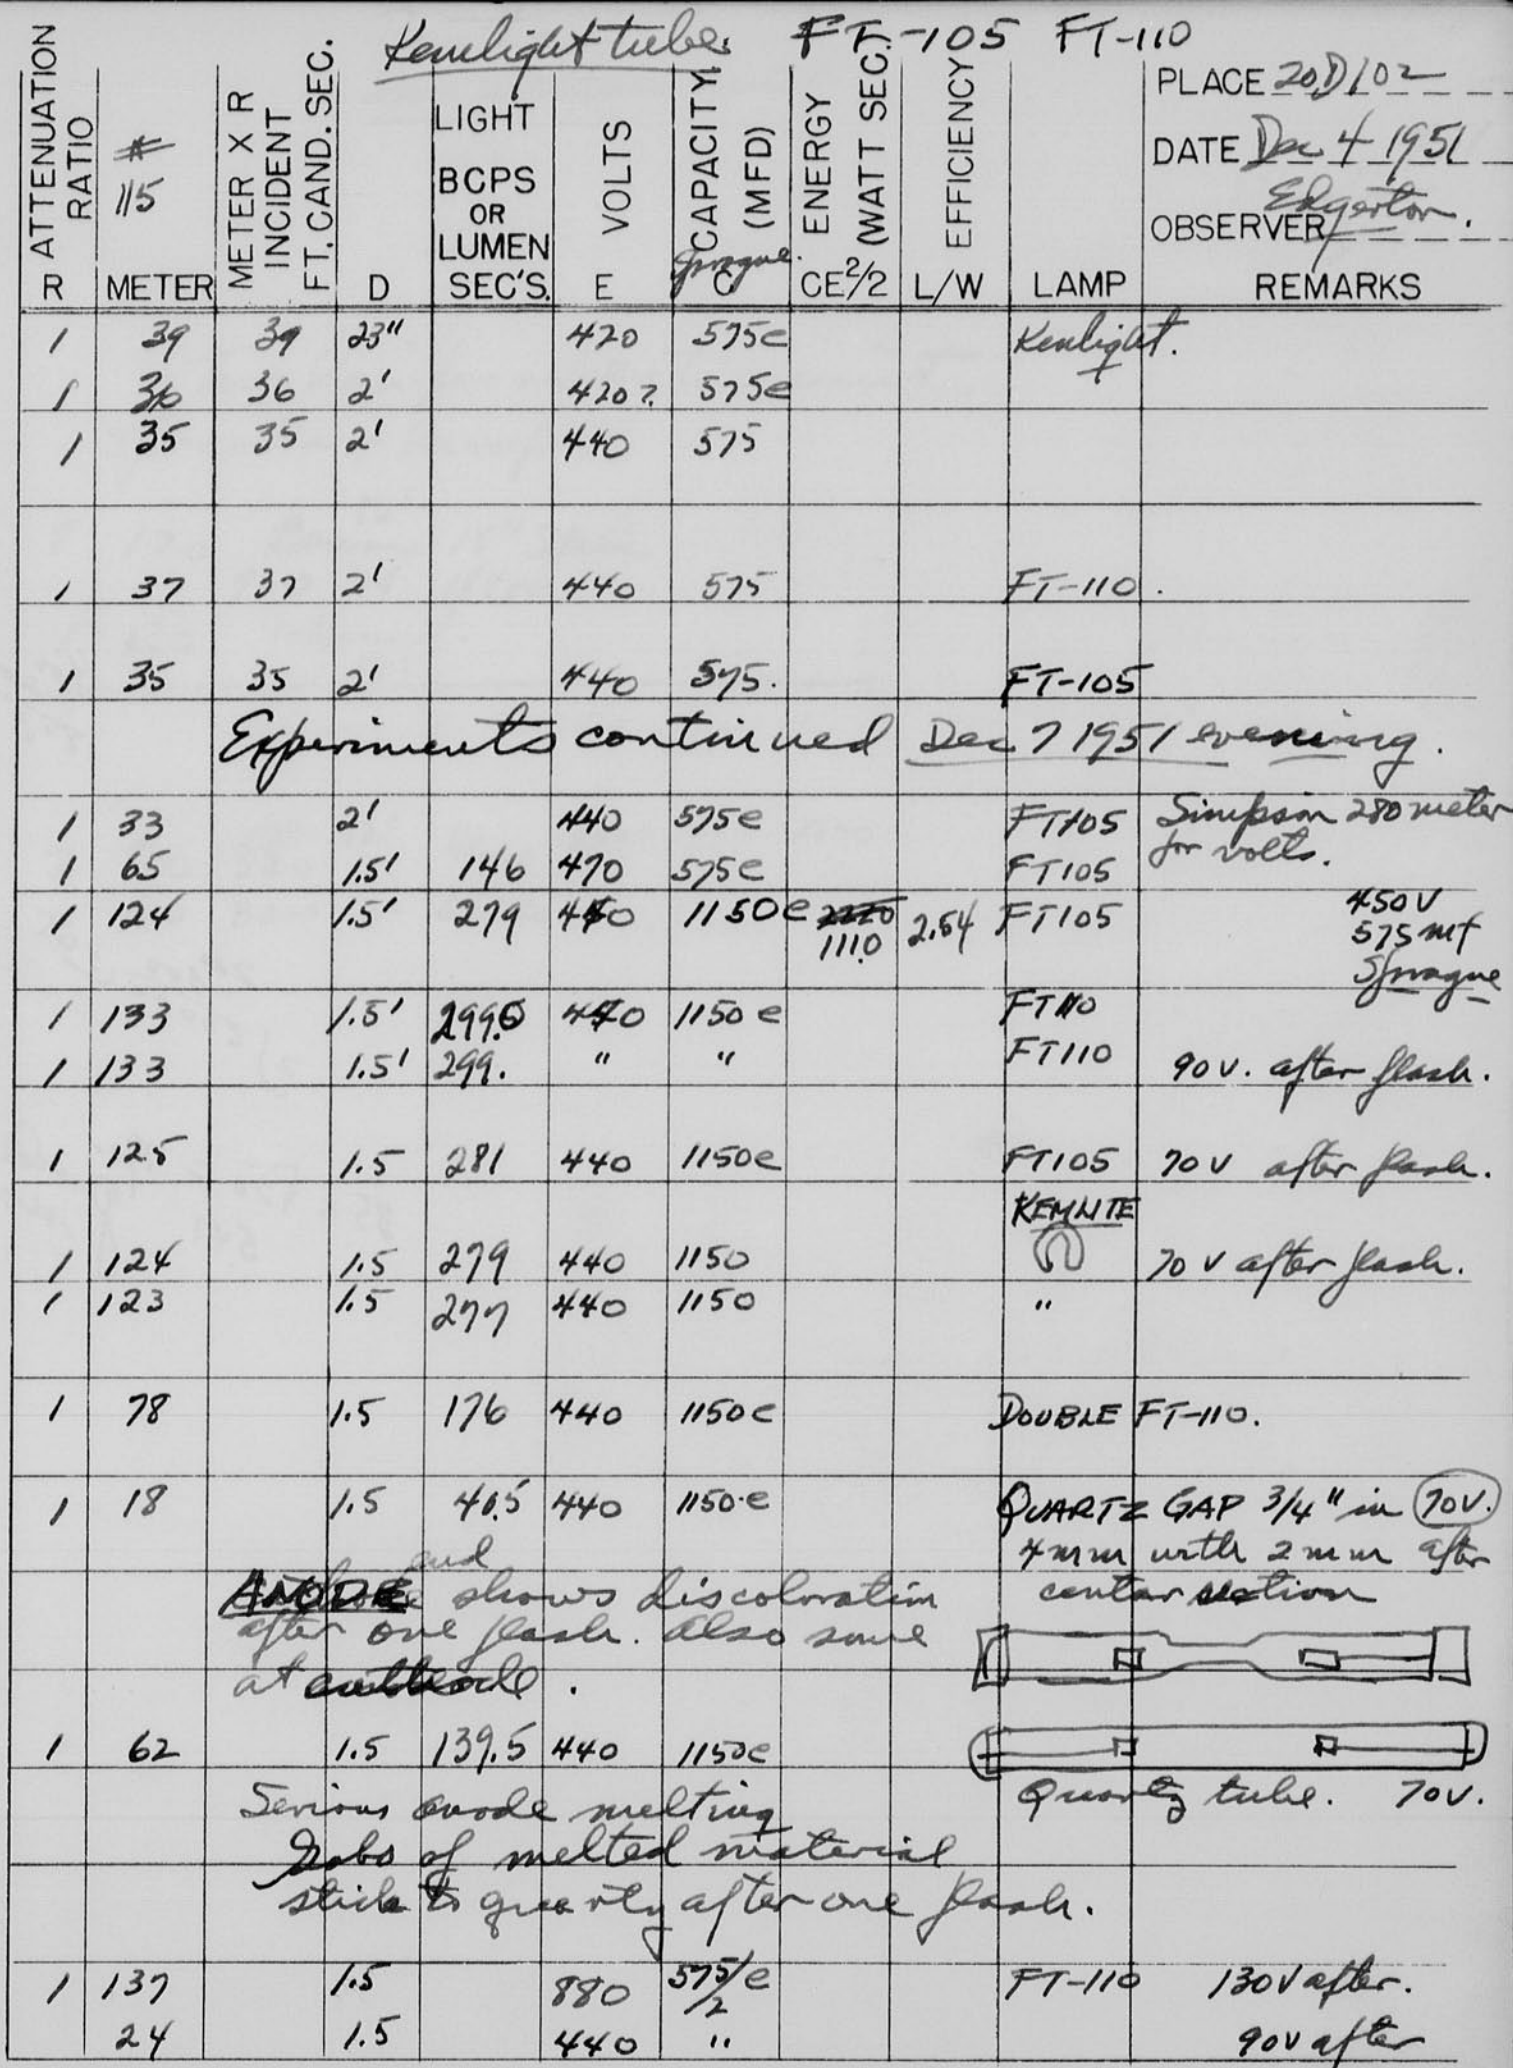 Kemlight tube FT-105 FT-110
ATTENUATION RATIO R
# 115 METER
METER X R INCIDENT FT. CAND. SEC.
D
LIGHT BCPS OR LUMEN SEC'S.
VOLTS E
CAPACITY (MFD) Sprague. C
ENERGY (WATT SEC.) CE²/2
EFFICIENCY L/W
LAMP
PLACE 20D102
DATE Dec 4 1951
OBSERVER Edgerton.
REMARKS
1 39 39 23" 420 575e Kenlight.
1 36 36 2' 420? 575e
1 35 35 2' 440 575
1 37 37 2' 440 575 FT-110.
1 35 35 2' 440 575. FT-105
Experiments continued Dec 7 1951 evening.
1 33 2' 440 575e FT105 Simpson 280 meter
for volts.
1 65 1.5' 146 470 575e FT105
1 124 1.5' 279 440 1150e 1110 2.54 FT105 450V
575 mf
Sprague
1 133 1.5' 299.5 440 1150e FT110
1 133 1.5' 299. " " FT110 90V. after flash.
1 125 1.5 281 440 1150e FT105 70V after flash.
KEMLITE
1 124 1.5 279 440 1150 70V after flash.
1 123 1.5 277 440 1150 "
1 78 1.5 176 440 1150e DOUBLE FT-110.
1 18 1.5 40.5 440 1150e QUARTZ GAP 3/4" in 70V.
4mm with 2mm after
center section
ANODE end shows discoloration
after one flash. Also some
at cathode.
1 62 1.5 139.5 440 1150e
Quartz tube. 70V.
Serious anode melting
Gobs of melted material
stick to quartz after one flash.
1 137 1.5 880 575/2 e FT-110 130V after.
24 1.5 440 " 90V after